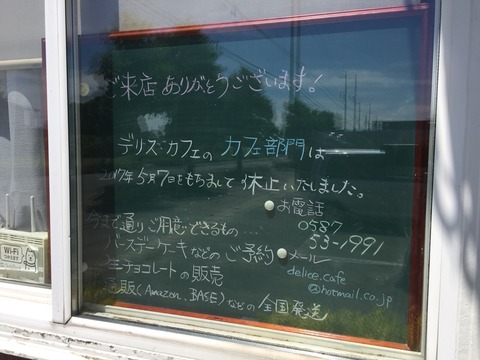 ご来店ありがとうございます!
デリズ・カフェの カフェ部門は
2017年5月7日をもちまして休止いたしました。
今まで通りご用意できるもの…
バースデーケーキなどのご予約
チョコレートの販売
通販(Amazon、BASE)などの全国発送
お電話
0587
53-1991
メール
delice.cafe
@hotmail.co.jp
Wi-Fi